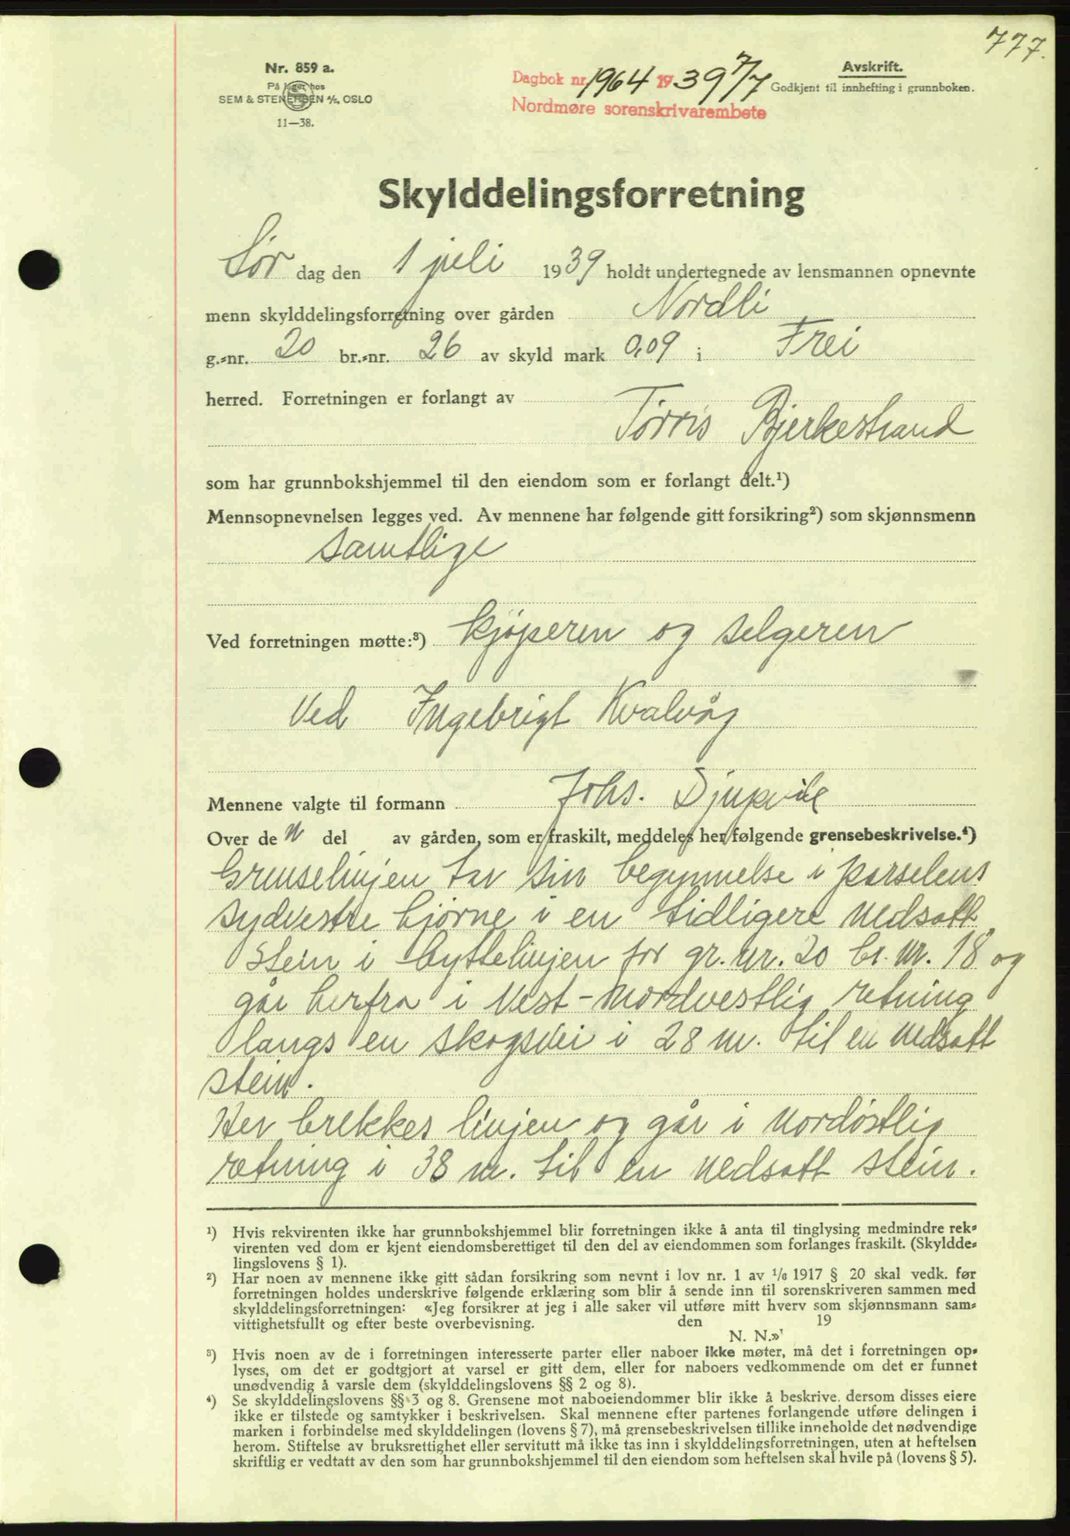 777.
Nr. 859 a.
På lager hos
SEM & STENERSEN A/S, OSLO
11—38.
Dagbok nr. 1964 1939 7/7
Nordmøre sorenskrivarembete
Avskrift.
Godkjent til innhefting i grunnboken.
Skylddelingsforretning
Lør dag den 1 juli 1939 holdt undertegnede av lensmannen opnevnte
menn skylddelingsforretning over gården Nordli
g.-nr. 20 br.-nr. 26 av skyld mark 0,09 i Frei
herred. Forretningen er forlangt av
Tørris Bjerkestrand
som har grunnbokshjemmel til den eiendom som er forlangt delt.¹)
Mennsopnevnelsen legges ved. Av mennene har følgende gitt forsikring²) som skjønnsmenn
samtlige
Ved forretningen møtte:³) kjøperen og selgeren
ved Ingebrigt Kvalvåg
Mennene valgte til formann Johs. Djupvik
Over den del av gården, som er fraskilt, meddeles her følgende grensebeskrivelse.⁴)
Grenselinjen tar sin begynnelse i parselens
sydvestre hjørne i en tidligere nedsatt
stein i byttelinjen for gr. nr. 20 br. nr. 18 og
går herfra i vest-nordvestlig retning
langs en skogsvei i 28 m. til en nedsatt
stein.
Her brekkes linjen og går i nordøstlig
retning i 38 m. til en nedsatt stein.
¹) Hvis rekvirenten ikke har grunnbokshjemmel blir forretningen ikke å anta til tinglysing medmindre rek-
virenten ved dom er kjent eiendomsberettiget til den del av eiendommen som forlanges fraskilt. (Skyldde-
lingslovens § 1).
²) Har noen av mennene ikke gitt sådan forsikring som nevnt i lov nr. 1 av 1/6 1917 § 20 skal vedk. før
forretningen holdes underskrive følgende erklæring som blir å sende inn til sorenskriveren sammen med
skylddelingsforretningen: «Jeg forsikrer at jeg i alle saker vil utføre mitt hverv som skjønnsmann sam-
vittighetsfullt og efter beste overbevisning. den 19
N. N.»
³) Hvis noen av de i forretningen interesserte parter eller naboer ikke møter, må det i forretningen op-
lyses, om det er godtgjort at varsel er gitt dem, eller for naboers vedkommende om det er funnet
unødvendig å varsle dem (skylddelingslovens §§ 2 og 8).
⁴) Se skylddelingslovens §§ 3 og 8. Grensene mot naboeiendommer blir ikke å beskrive, dersom disses eiere
ikke er tilstede og samtykker i beskrivelsen. Skal mennene efter partenes forlangende utføre delingen i
marken i forbindelse med skylddelingen (lovens § 7), må grensebeskrivelsen tillike inneholde det nødvendige
herom. Stiftelse av bruksrettighet eller servitutt må ikke tas inn i skylddelingsforretningen, uten at heftelsen
skriftlig er vedtatt av den som har grunnbokshjemmel til den eiendom som heftelsen skal hvile på (lovens § 5).